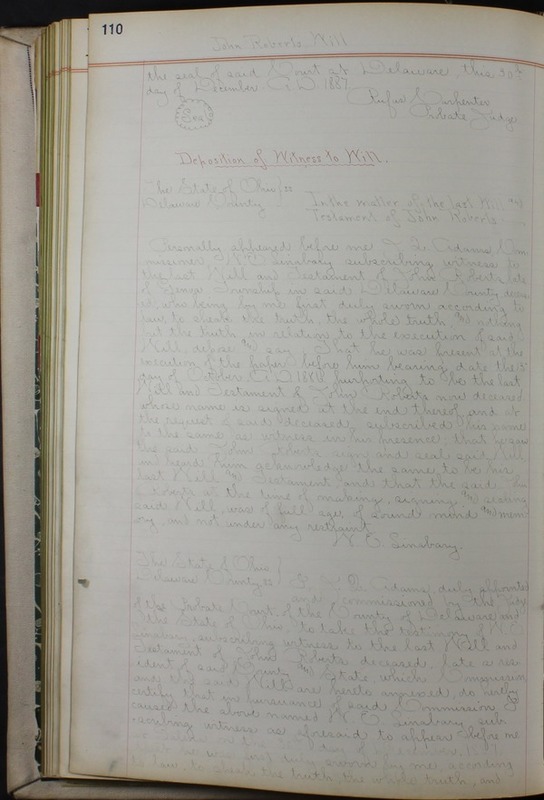 110
John Roberts Will
the seal of said Court at Delaware, this 20th
day of December A.D. 1887
Rufus Carpenter
Probate Judge
Seal
Deposition of Witness to Will.
The State of Ohio ss
Delaware County
In the matter of the last Will and
Testament of John Roberts
Personally appeared before me Adams Com
missioner, W E Sinsabary subscribing witness to
the last Will and Testament of John Roberts late
of Township in said Delaware County, deceas
ed, who being by me first duly sworn according to
law, to speak the truth, the whole truth and nothing
but the truth, in relation to the execution of said
Will, depose and say That he was present at the
execution of the paper before him bearing date the
day of October A.D. purporting to be the last
Will and Testament of John Roberts now deceased
whose name is signed at the end thereof, and at
the request of said deceased, subscribed his name
to the same as witness in his presence; that he saw
the said John Roberts sign and seal said Will
and heard him acknowledge the same to be his
last Will and Testament and that the said John
Roberts at the time of making, signing and sealing
said Will, was of full age, of sound mind and mem
ory, and not under any restraint
W. E. Sinsabary
The State of Ohio
Delaware County ss Adams, duly appointed
and commissioned by the Judge
of the Probate Court, of the County of Delaware and
the State of Ohio, to take the testimony of W E
Sinsabary, subscribing witness to the last Will and
Testament of John Roberts deceased, late a res
ident of said County and State which Commission
and the said Will are hereto annexed, do hereby
certify that in pursuance of said Commission, I
caused the above named W E Sinsabary sub
scribing witness as aforesaid to appear before me
day of
he was first duly sworn by me, according
to law, to speak the truth, the whole truth, and